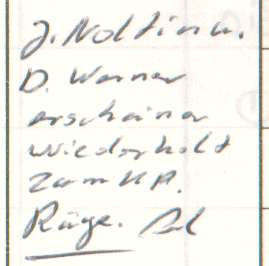 J. Nolting u.
D. Werner
erscheinen
wiederholt
zum UR.
Rüge.